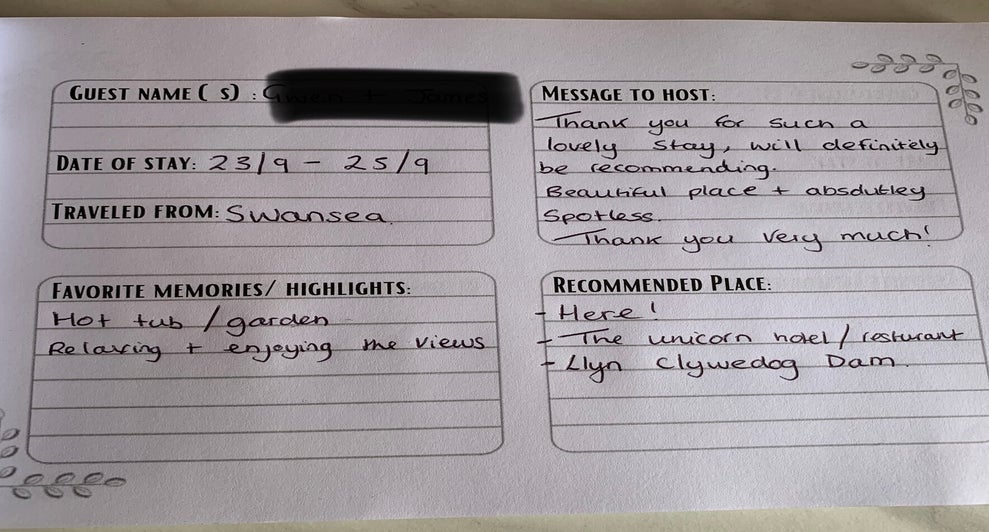 GUEST NAME( S) :
DATE OF STAY: 23/9 - 25/9
TRAVELED FROM: Swansea.
MESSAGE TO HOST:
Thank you for such a
lovely stay, will definitely
be recommending.
Beautiful place + absolutley
Spotless.
Thank you very much!
FAVORITE MEMORIES/ HIGHLIGHTS:
Hot tub / garden
Relaxing + enjoying the views
RECOMMENDED PLACE:
- Here!
- The unicorn hotel / resturant
- Llyn Clywedog Dam.